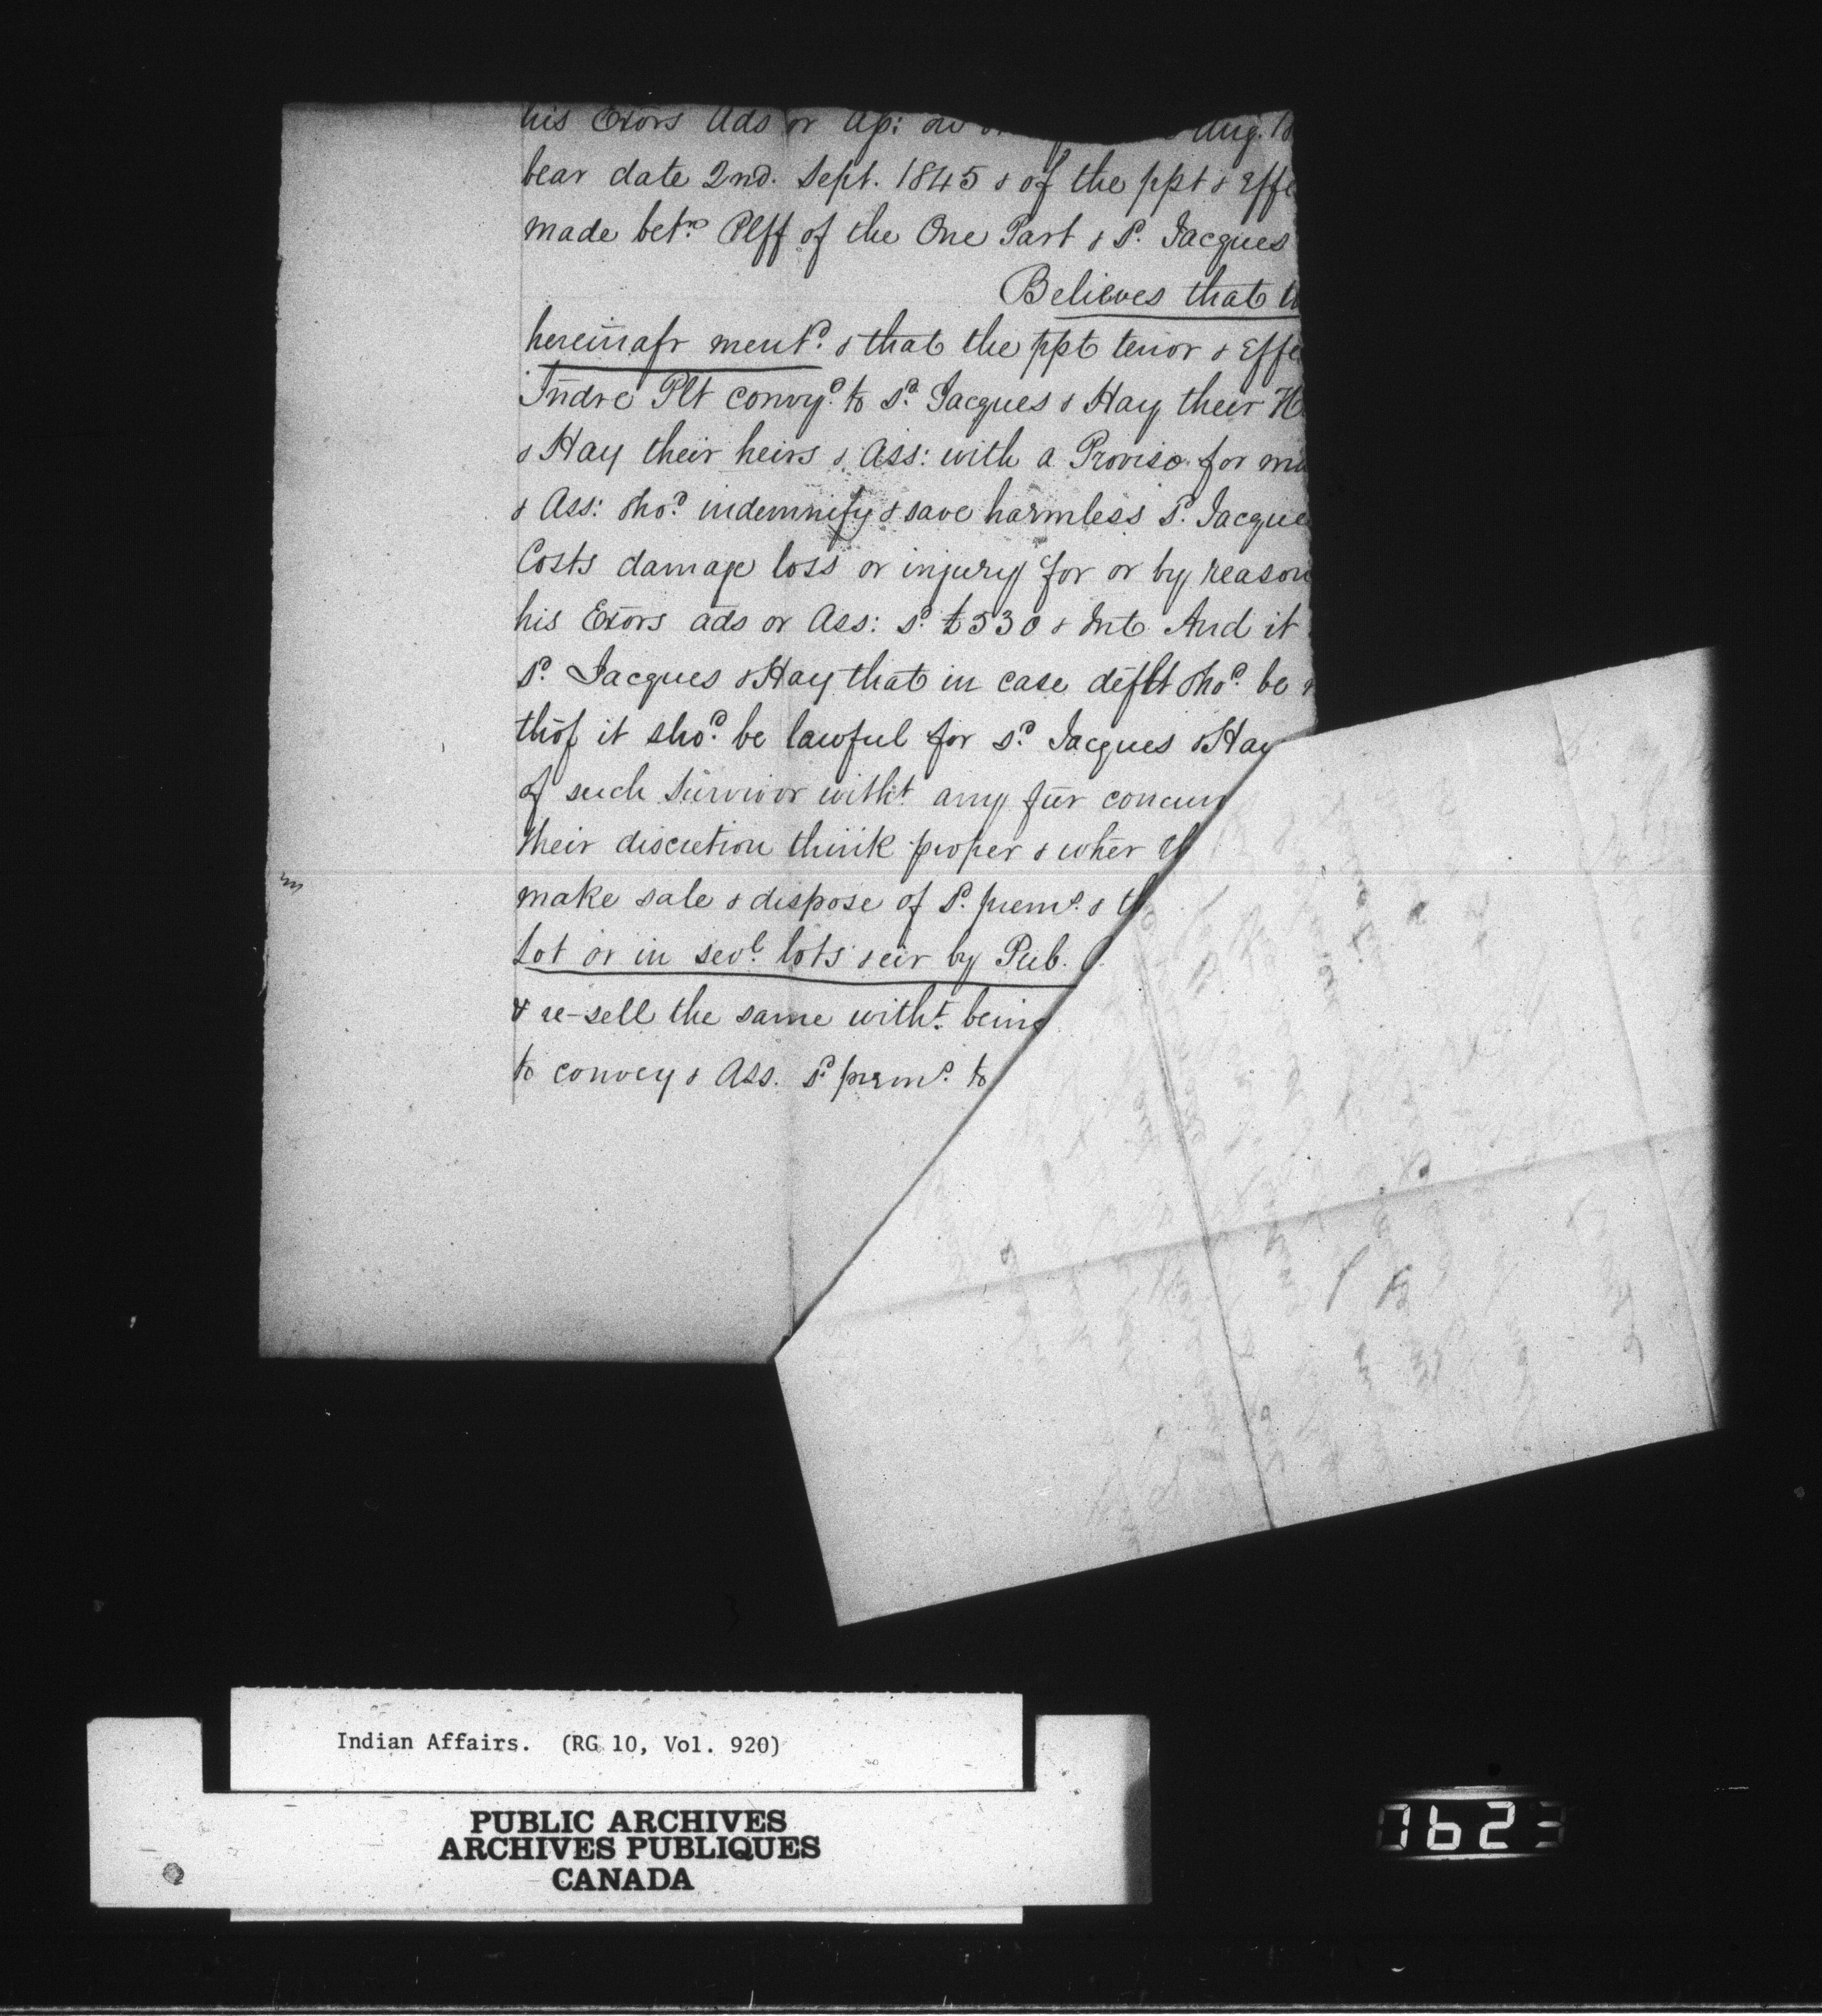 his Exõrs Ads or Ap: Aug. 18
bear date 2nd. Sept. 1845 & of the ppt & Effe
made betn. Plff of the One Part & sd. Jacques
Believes that
hereinafr mentd. & that the ppt tenor & Effe
Indre Plt convyd. to sd. Jacques & Hay their H
& Hay their heirs & Ass: with a Proviso for ma
& Ass: shod. indemnify & save harmless sd. Jacque
Costs damage loss or injury for or by reason
his Exõrs ads or Ass: sd. £530 & Int And it
sd. Jacques & Hay that in case deflt shod. be
thof it shod. be lawful for sd. Jacques & Hay
of such Survivor witht any fur concur
their discretion think proper & wher th
make sale & dispose of sd. prems. & th
Lot or in sevl. lots & eir by Pub.
& re-sell the same witht. being
to convey & Ass. sd. prems. to
Indian Affairs. (RG 10, Vol. 920)
PUBLIC ARCHIVES
ARCHIVES PUBLIQUES
CANADA
7623